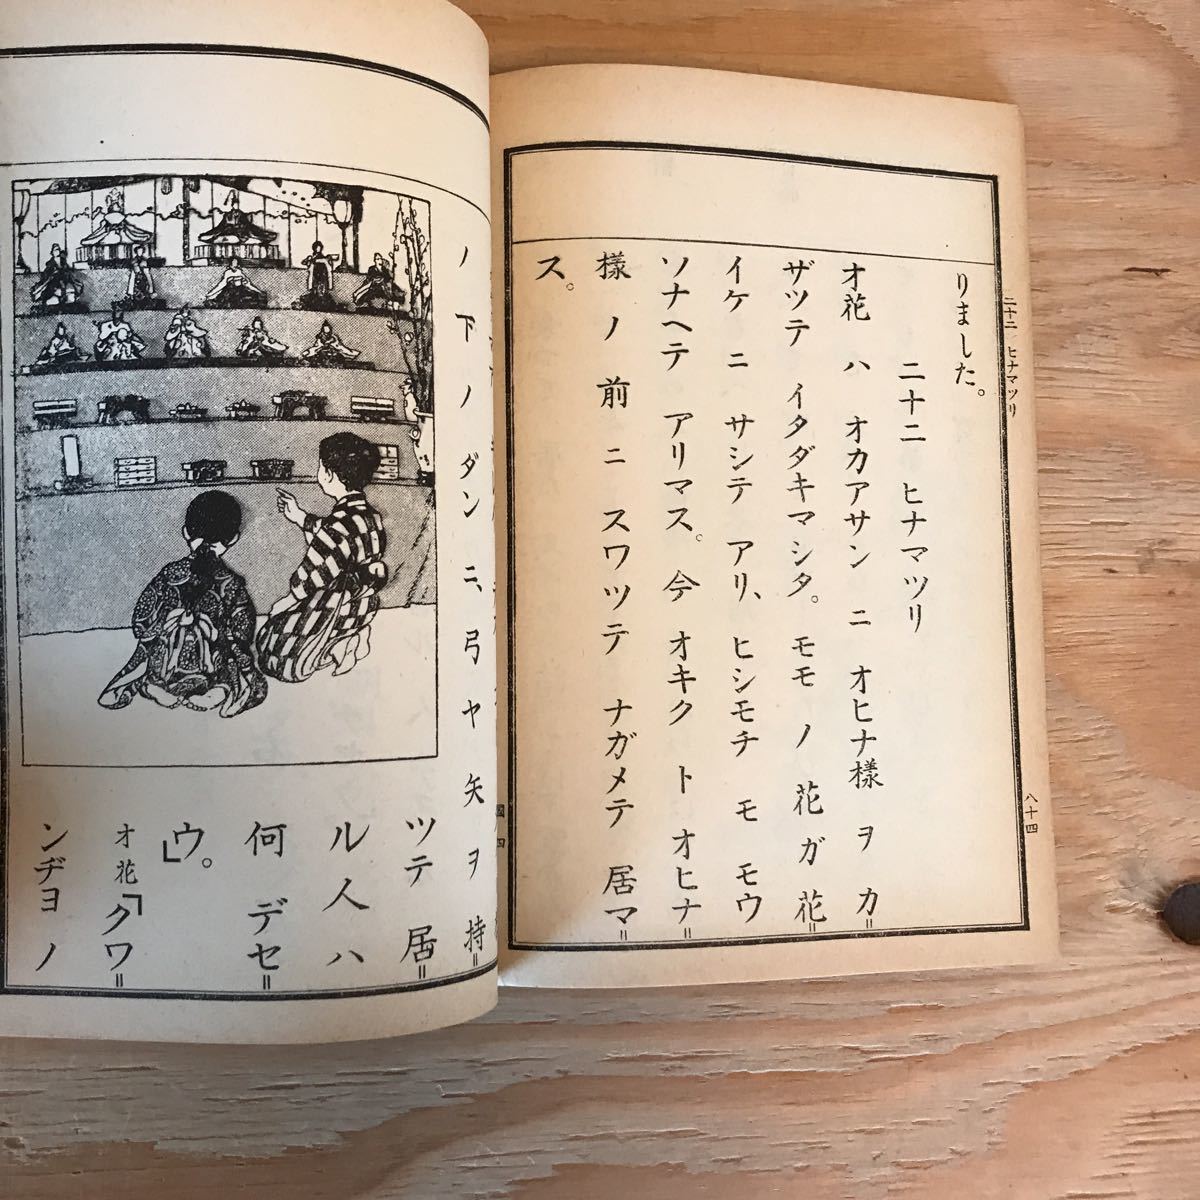 りました。
二十二 ヒナマツリ
オ花 ハ オカアサン ニ オヒナ様 ヲ カ＝
ザツテ イタダキマシタ。 モモ ノ 花 ガ 花＝
イケ ニ サシテ アリ、 ヒシモチ モ モウ
ソナヘテ アリマス。 今 オキク ト オヒナ＝
様 ノ 前 ニ スワツテ ナガメテ 居マ＝
ス。
二十二 ヒナマツリ
八十四
ノ 下 ノ ダン ニ、 弓 ヤ 矢 ヲ 持＝
ツテ 居＝
ル 人 ハ
何 デセ＝
ウ。」
オ花「クワ＝
ンヂヨ ノ